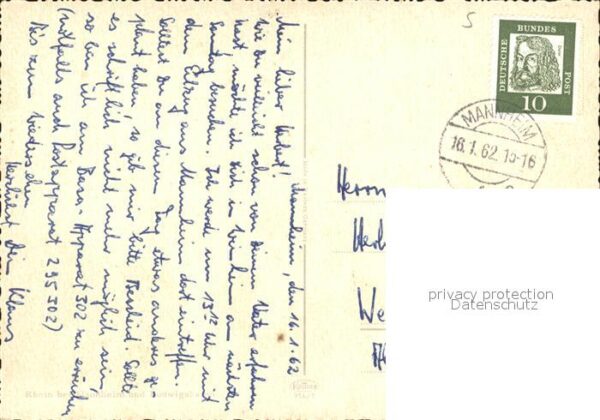 Mannheim, den 16.1.62
Mein lieber Herbert!
Wie Du vielleicht schon von Deinem Vater erfahren
hast, möchte ich Dich in Weinheim am nächsten
Sonntag besuchen. Ich werde um 13 Uhr mit
dem Eilzug aus Mannheim dort eintreffen.
Solltest Du an diesem Tag etwas anderes ge-
plant haben, so gib mir bitte Bescheid. Sollte
es schriftlich nicht mehr möglich sein,
so bin ich am Apparat 302 zu erreichen
(notfalls auch Postapparat 295302)
Bis zum Wiedersehen
herzlichst Dein Klaus
Herrn
Her
We
DEUTSCHE
BUNDES
POST
10
MANNHEIM
16.1.62.15-16
5
privacy protection
Datenschutz